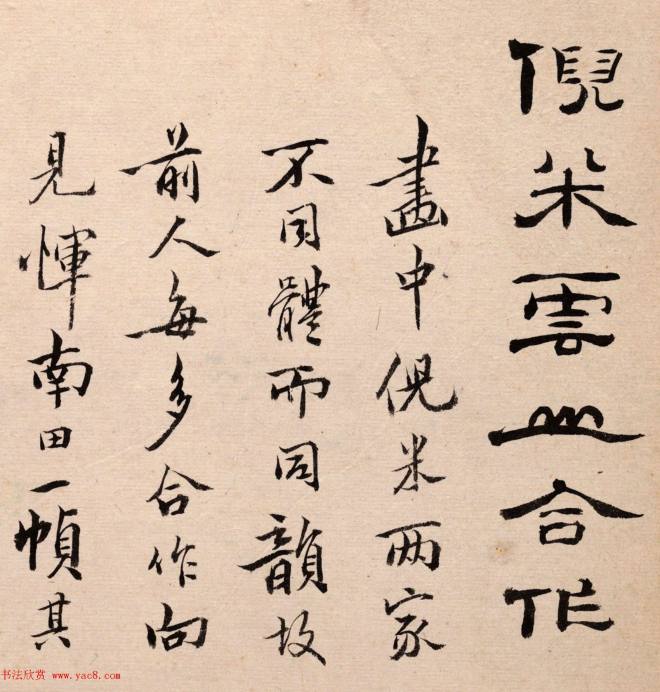 倪米雲山合作
畫中倪米两家
不同體而同韻故
前人每多合作向
見惲南田一幀其
书法欣赏 www.yac8.com